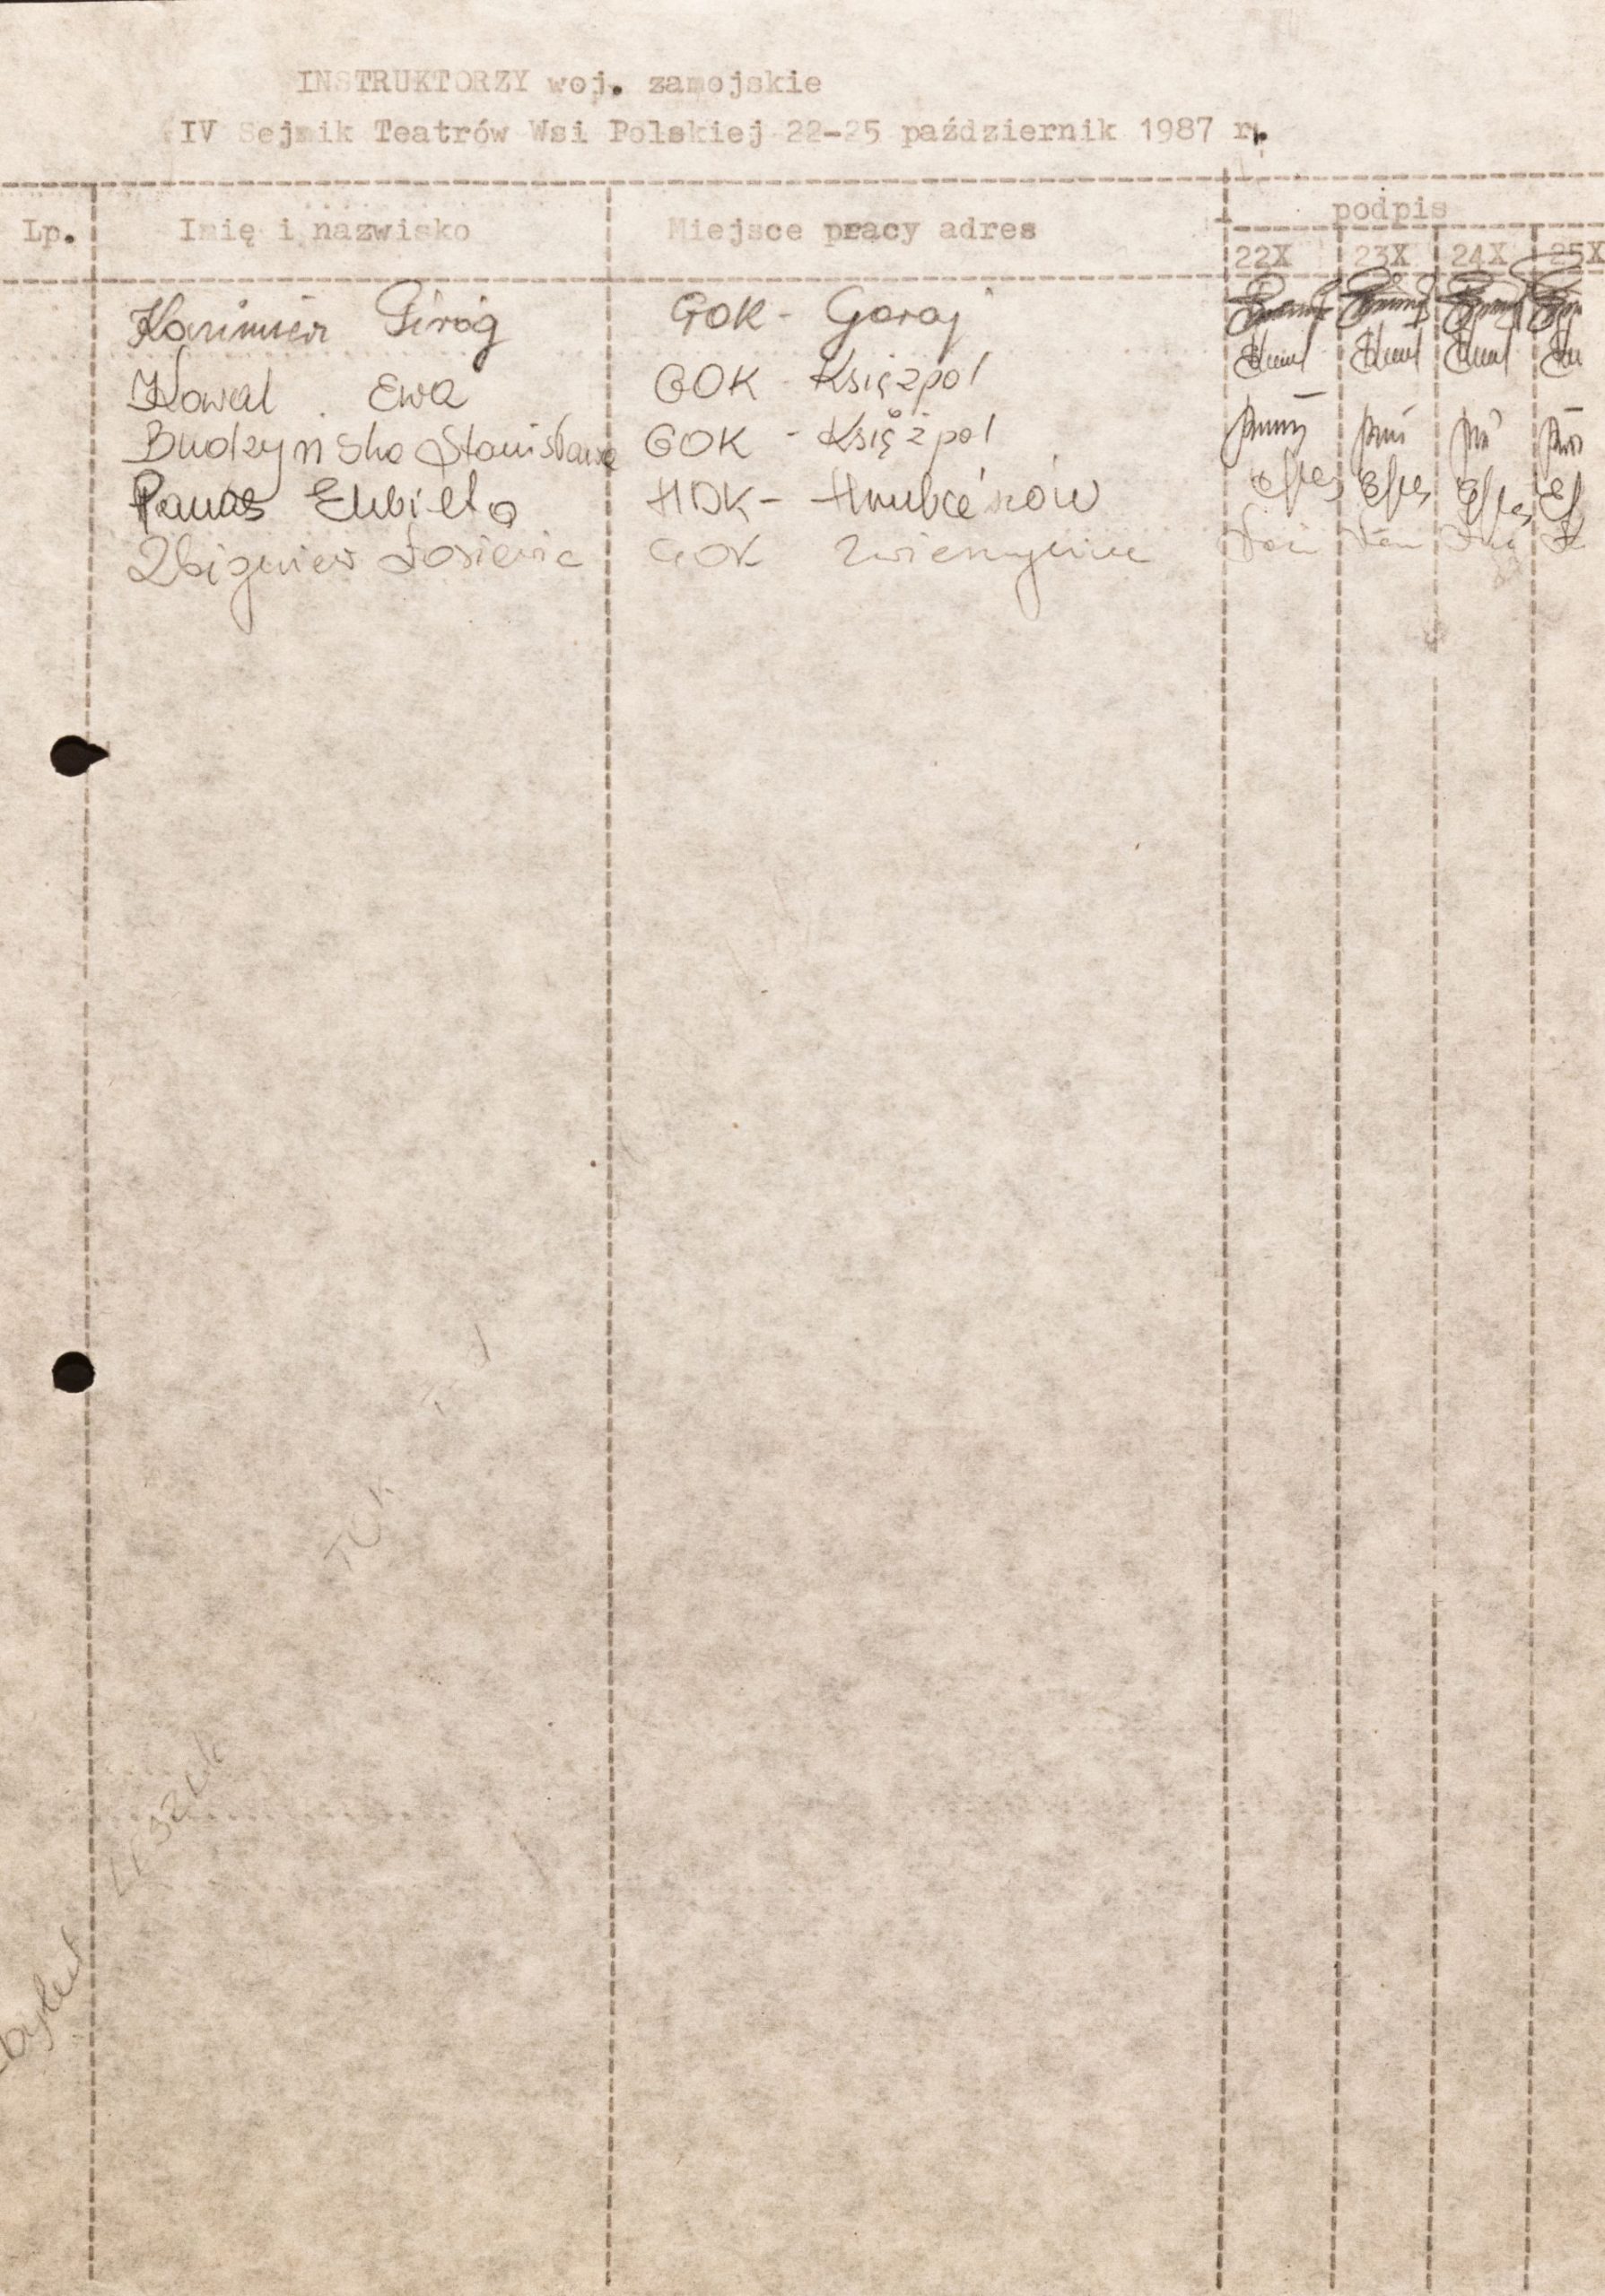 INSTRUKTORZY woj. zamojskie
IV Sejmik Teatrów Wsi Polskiej 22-25 październik 1987 r.
Lp. Imię i nazwisko Miejsce pracy adres podpis
22X 23X 24X 25X
Kazimierz Piróg GOK - Goraj
Kowal Ewa GOK - Księżpol
Budzyńska Stanisława GOK - Księżpol
Panas Elżbieta HDK - Hrubieszów
Zbigniew GOK Zwierzyniec